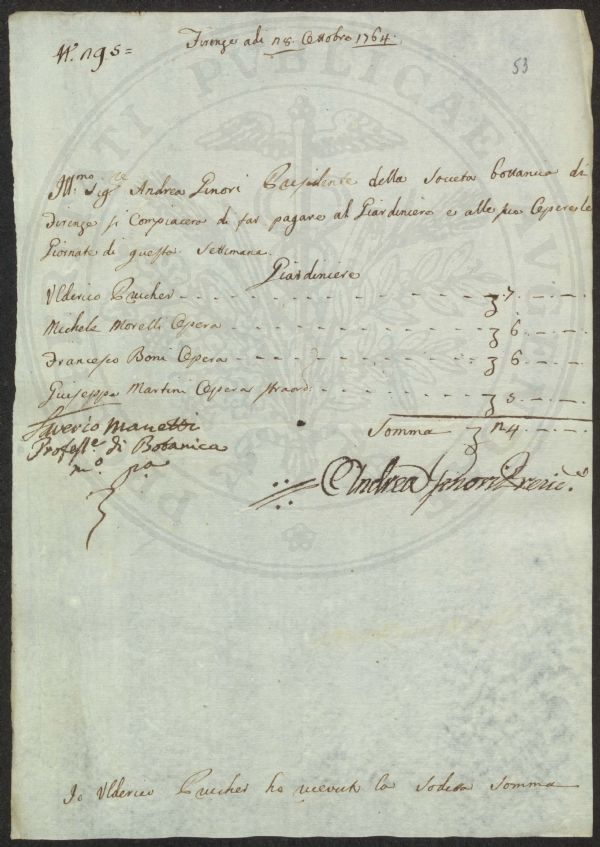 N.° 295=
Firenze adi 28. Ottobre 1764.
53
Ill.mo Sig.re Andrea Ginori Presidente della Società Bottanica di
Firenze si Compiacerà di far pagare al Giardiniere e alle sue Opere le
Giornate di questa Settimana
Giardiniere
Ulderico Prucher - - - - 7 - - -
Michele Morelli Opera - - - - 6 - - -
Francesco Boni Opera - - - - 6 - - -
Giuseppe Martini Opera straord: - - - - 5 - - -
Somma 24 - - -
Saverio Manetti
Profess.e di Botanica
m.° pa
Andrea Ginori Presid.e
Io Ulderico Prucher ho ricevuto la sodetta Somma
PVBLICAE